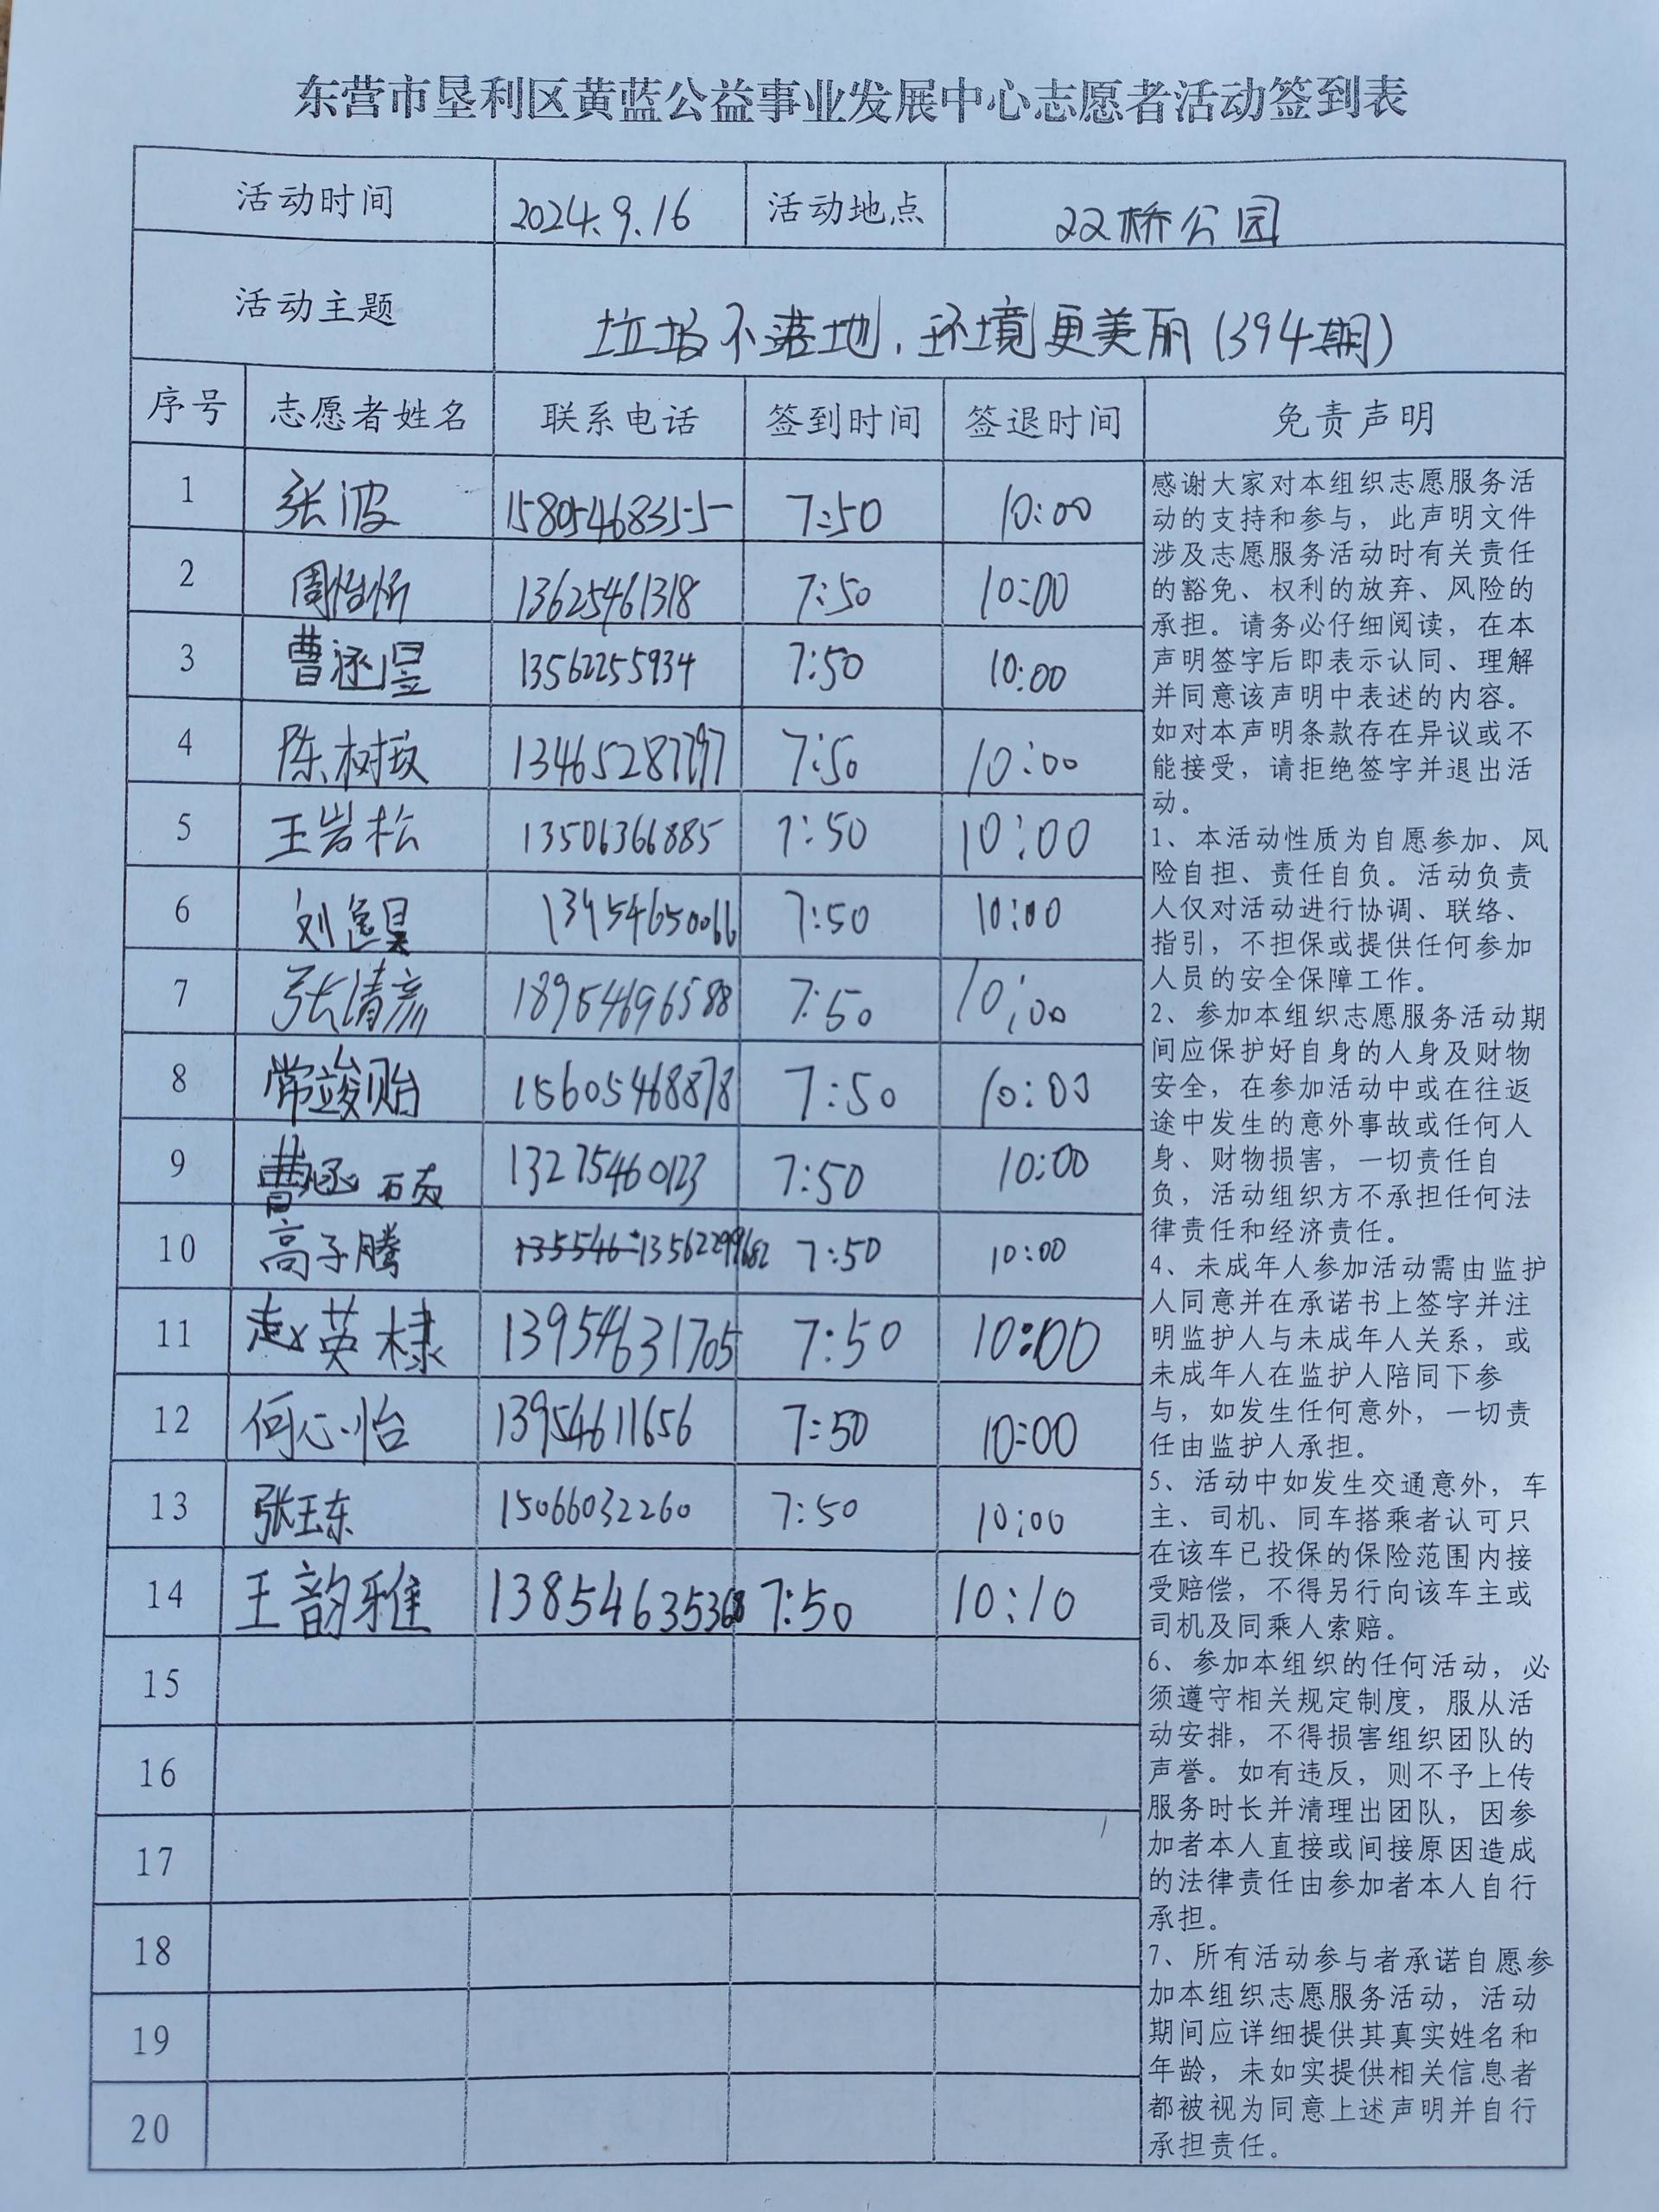 东营市垦利区黄蓝公益事业发展中心志愿者活动签到表
活动时间 2024.9.16 活动地点 双桥公园
活动主题 垃圾不落地，环境更美丽(394期)
序号 志愿者姓名 联系电话 签到时间 签退时间 免责声明
1 张波 15805468355 7:50 10:00
2 周怡忻 13625461318 7:50 10:00
3 曹涵昱 13562255934 7:50 10:00
4 陈树 13465287797 7:50 10:00
5 王岩松 13506366885 7:50 10:00
6 刘昊 13954650066 7:50 10:00
7 张清亮 18954696588 7:50 10:00
8 常竣贻 15605468878 7:50 10:00
9 曹涵硕 13275460123 7:50 10:00
10 高子腾 13562299682 7:50 10:00
11 赵英棣 13954631705 7:50 10:00
12 何心怡 13954611656 7:50 10:00
13 张玉东 15066032260 7:50 10:00
14 王韵雅 13854635368 7:50 10:10
15
16
17
18
19
20
感谢大家对本组织志愿服务活
动的支持和参与，此声明文件
涉及志愿服务活动时有关责任
的豁免、权利的放弃、风险的
承担。请务必仔细阅读，在本
声明签字后即表示认同、理解
并同意该声明中表述的内容。
如对本声明条款存在异议或不
能接受，请拒绝签字并退出活
动。
1、本活动性质为自愿参加、风
险自担、责任自负。活动负责
人仅对活动进行协调、联络、
指引，不担保或提供任何参加
人员的安全保障工作。
2、参加本组织志愿服务活动期
间应保护好自身的人身及财物
安全，在参加活动中或在往返
途中发生的意外事故或任何人
身、财物损害，一切责任自
负，活动组织方不承担任何法
律责任和经济责任。
4、未成年人参加活动需由监护
人同意并在承诺书上签字并注
明监护人与未成年人关系，或
未成年人在监护人陪同下参
与，如发生任何意外，一切责
任由监护人承担。
5、活动中如发生交通意外，车
主、司机、同车搭乘者认可只
在该车已投保的保险范围内接
受赔偿，不得另行向该车主或
司机及同乘人索赔。
6、参加本组织的任何活动，必
须遵守相关规定制度，服从活
动安排，不得损害组织团队的
声誉。如有违反，则不予上传
服务时长并清理出团队，因参
加者本人直接或间接原因造成
的法律责任由参加者本人自行
承担。
7、所有活动参与者承诺自愿参
加本组织志愿服务活动，活动
期间应详细提供其真实姓名和
年龄，未如实提供相关信息者
都被视为同意上述声明并自行
承担责任。